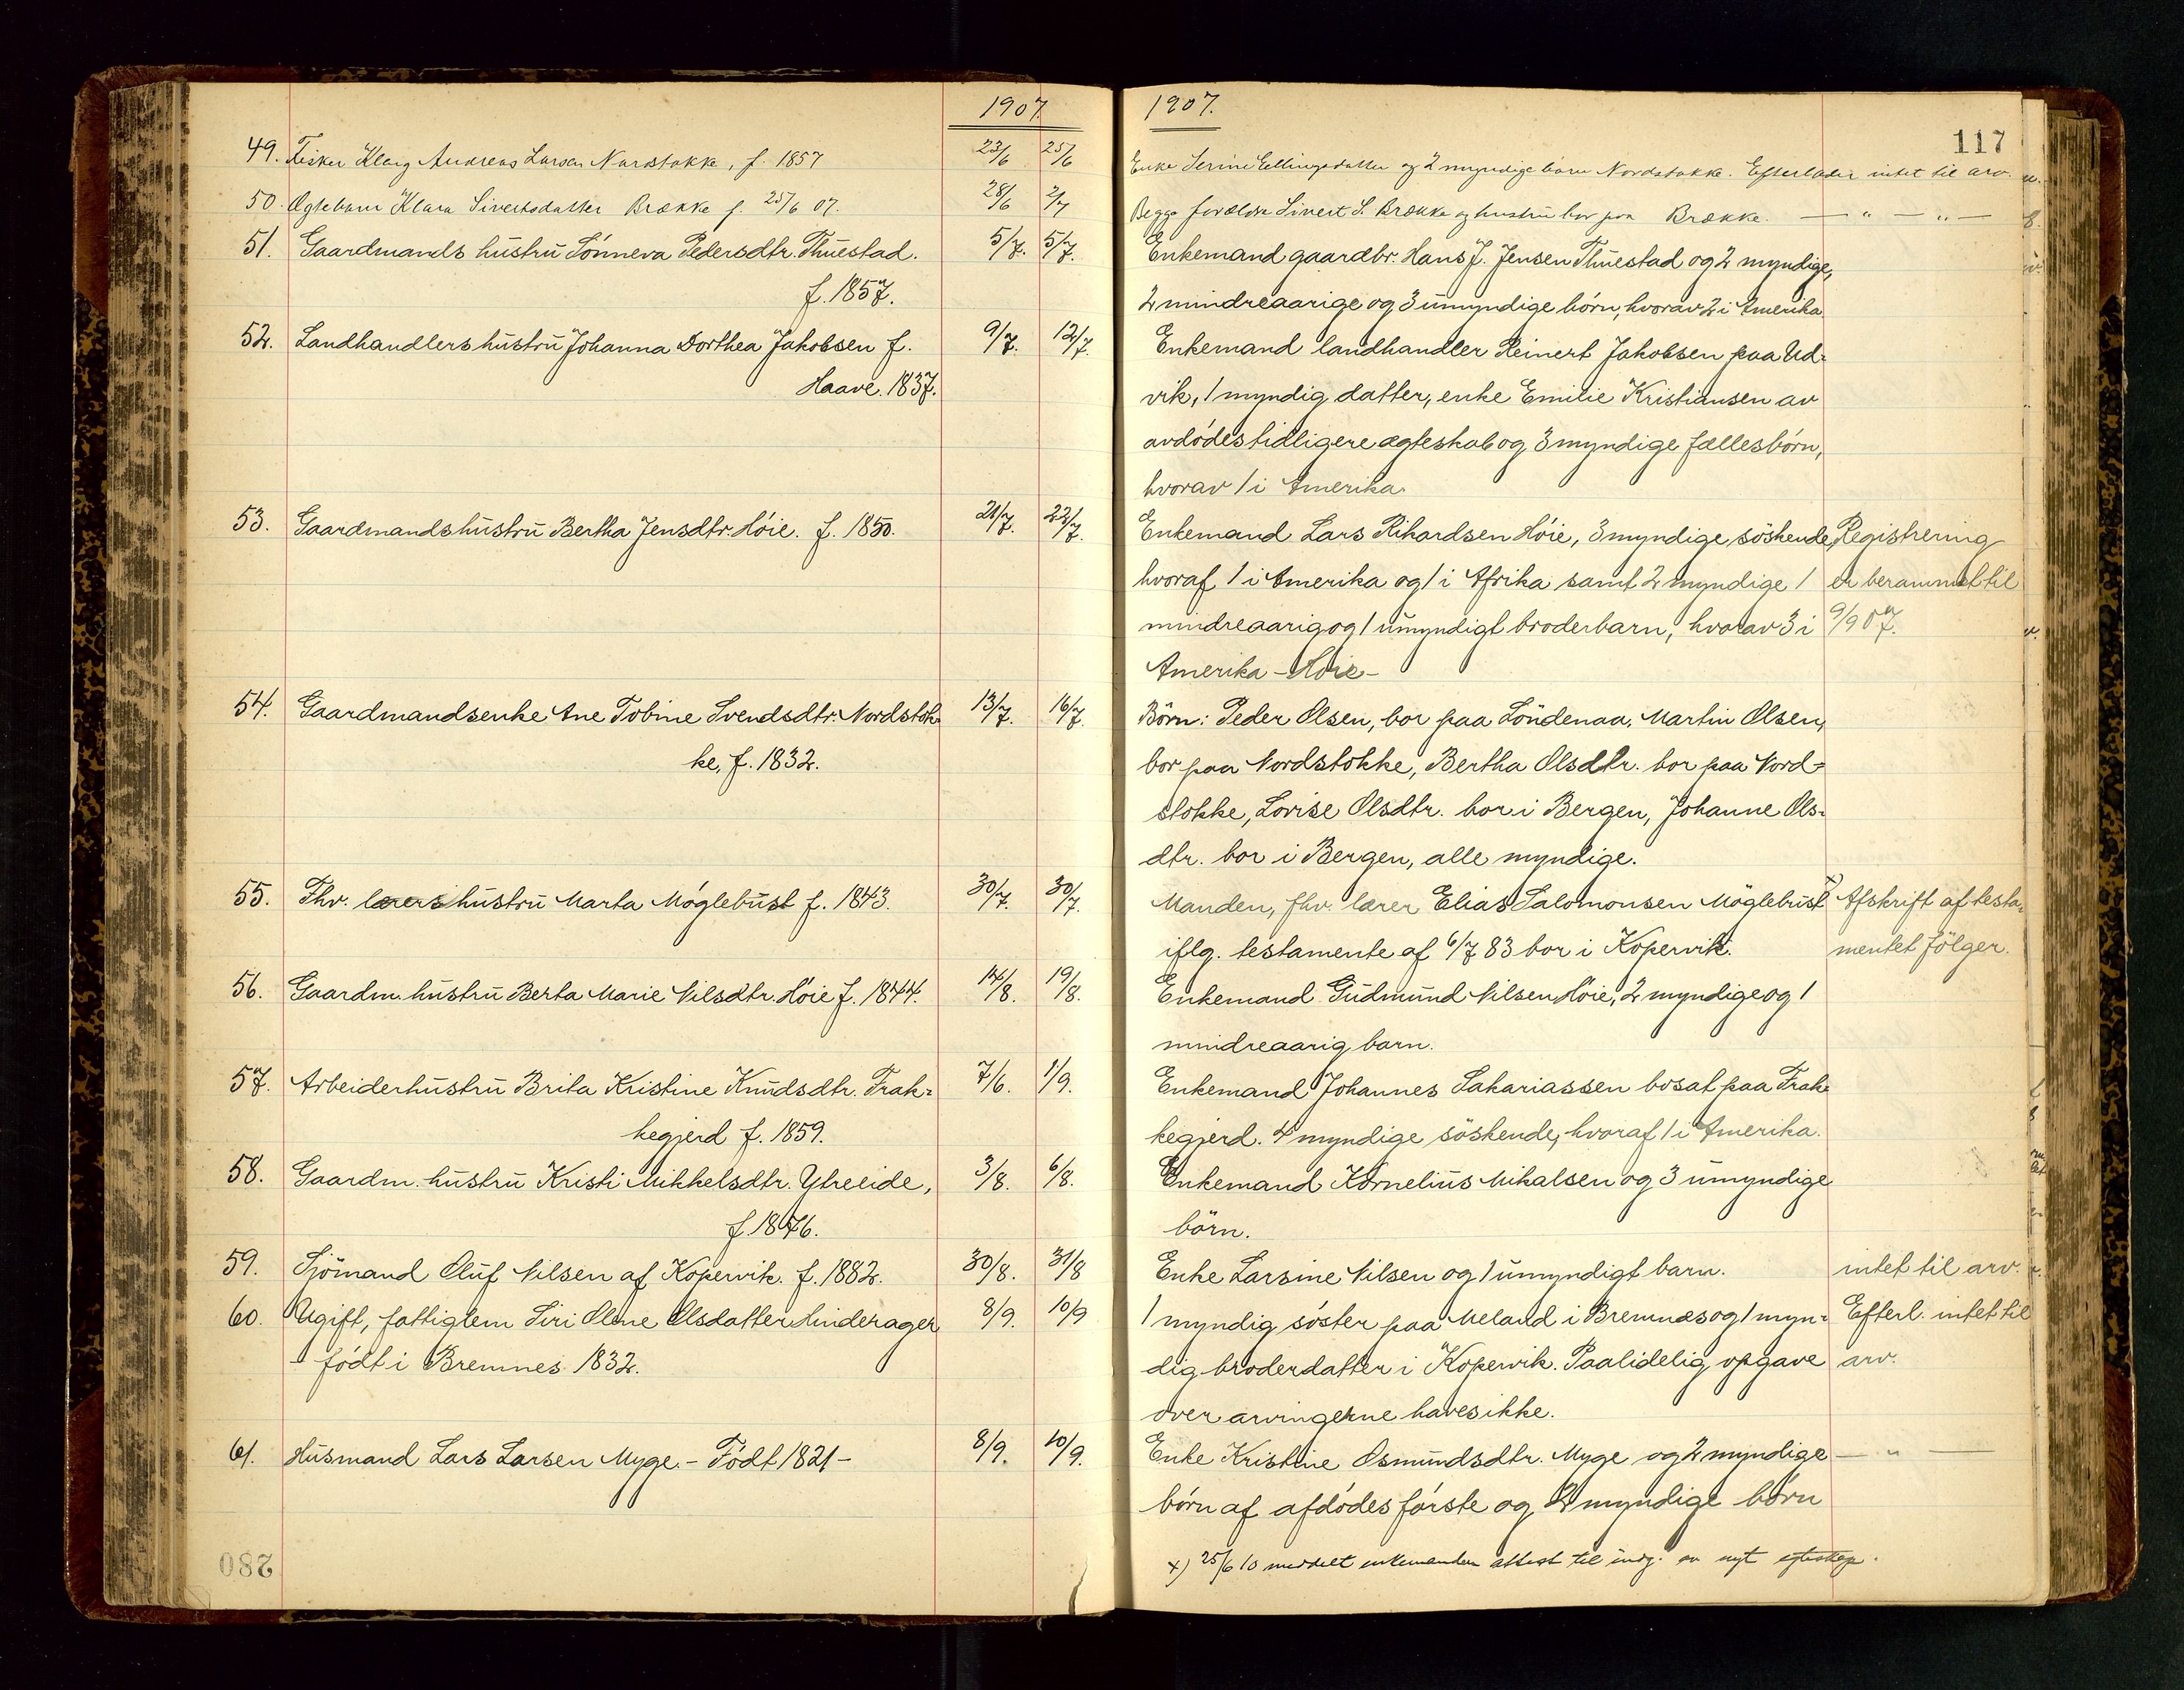 1907.
49. Fisker Klaus Andreas Larsen Nordstokke, f. 1857 23/6 25/6
50. Ægtebarn Klara Sivertsdatter Brække f. 25/6 07. 28/6 2/7
51. Gaardmands hustru Sönneva Pedersdtr. Thuestad. 5/7. 5/7.
f. 1857.
52. Landhandlers hustru Johanna Dorthea Jakobsen f. 9/7. 12/7.
Haave. 1837.
53. Gaardmandshustru Bertha Jensdtr. Höie. f. 1850. 21/7. 22/7.
54. Gaardmandsenke Ane Tobine Svendsdtr. Nordstok- 13/7. 16/7.
ke, f. 1832.
55. Fhv. lærers hustru Marta Möglebust f. 1843. 30/7. 30/7.
56. Gaardm. hustru Berta Marie Nilsdtr. Höie f. 1844. 14/8. 19/8.
57. Arbeiderhustru Brita Kristine Knudsdtr. Frak- 7/6. 1/9.
kegjerd f. 1859.
58. Gaardm. hustru Kristi Mikkelsdtr. Ytreeide, 3/8. 6/8.
f. 1876.
59. Sjömand Oluf Nilsen af Kopervik. f. 1882. 30/8. 31/8
60. Ugift, fattiglem Siri Olene Olsdatter Hinderager 8/9. 10/9
- födt i Bremnes 1832.
61. Husmand Lars Larsen Myge. - Födt 1821 - 8/9. 10/9.
280
1907.
117
Enke Serine Ellingsdatter og 2 myndige börn Nordstokke. Efterlader intet til arv.
Begge forældre Sivert S. Brække og hustru bor paa Brække. — " — " —
Enkemand gaardbr. Hans J. Jensen Thuestad og 2 myndige,
2 mindreaarige og 3 umyndige börn, hvorav 2 i Amerika
Enkemand landhandler Reinert Jakobsen paa Ud-
vik, 1 myndig datter, enke Emilie Kristiansen av
avdödes tidligere ægteskab og 3 myndige fællesbörn,
hvorav 1 i Amerika.
Enkemand Lars Rikardsen Höie, 3 myndige söskende, Registrering
hvoraf 1 i Amerika og 1 i Afrika samt 2 myndige 1 er berammet til
mindreaarig og 1 umyndigt broderbarn, hvorav 3 i 9/9 07.
Amerika - Höie -
Börn: Peder Olsen, bor paa Söndenaa, Martin Olsen,
bor paa Nordstokke, Bertha Olsdtr. bor paa Nord-
stokke, Lovise Olsdtr. bor i Bergen, Johanne Ols-
dtr. bor i Bergen, alle myndige.
Manden, fhv. lærer Elias Salomonsen Möglebust x) Afskrift af testa-
iflg. testamente af 6/7 83 bor i Kopervik. mentet fölger.
Enkemand Gudmund Nilsen Höie, 2 myndige og 1
mindreaarig barn.
Enkemand Johannes Sakariassen bosat paa Frak-
kegjerd. 4 myndige söskende, hvoraf 1 i Amerika.
Enkemand Kornelius Mikalsen og 3 umyndige
börn.
Enke Larsine Nilsen og 1 umyndigt barn. intet til arv.
1 myndig söster paa Meland i Bremnæs og 1 myn- Efterl. intet til
dig broderdatter i Kopervik. Paalidelig opgave arv.
over arvingerne haves ikke.
Enke Kristine Osmundsdtr. Myge og 2 myndige — " —
börn af afdödes förste og 2 myndige börn
x) 25/6 10 meddelt enkemanden attest til indg. av nyt egteskap.